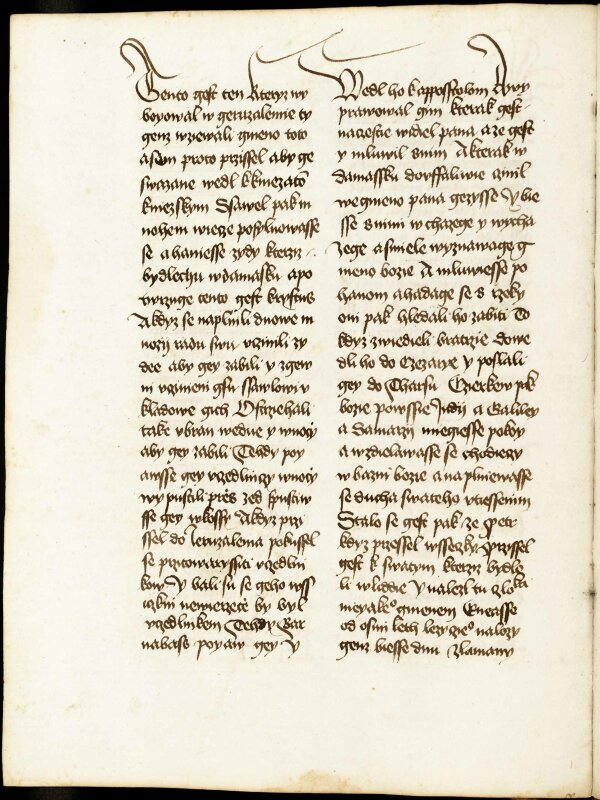 Tento gest ten kteryz wy
boyowal w geruzalemie ty
genz wzewali gmeno toto
a sem proto przissel aby ge
swazane wedl k kniezatom
knezskym Ssawel pak m
nohem wiecze posylnowasse
se a haniesse zydy kterzi
bydlechu w damasku a po
twrzuge tento gest krystus
A kdyz se naplnili dnowe m
nozy radu swu vczinili zy
dee aby gey zabili y zgew
ni vczineni gsu ssawlowi v
kladowe gich Ostrziehali
take v bran we dne y w noczy
aby gey zabili Tehdy poy
awsse gey vczedlniczy w noczy
wypustili przes zed spustiw
sse gey w kossy A kdyz przi
ssel do Jeruzalema pokussel
se przitowarzyssiti vczedlni
kom Y bali su se geho wss
iczkni newierzecze by byl
vczedlnikem Tehdy Bar
nabass poyaw gey y
Wedl ho k appostolom A wy
prawowal gim kterak gest
na czestie widiel pana a ze gest
y mluwil s nim A kterak w
damassku dorffaliwie czinil
we gmeno pana gezysse Y bie
sse s nimi wchazege y wycha
zege a smiele wyznawage g
meno bozie A mluwiesse po
hanom a hadage se s rzeky
oni pak hledali ho zabiti To
kdyz zwiedieli bratrzie dowe
dli ho do Czezarye y poslali
gey do Tharsu Czierkew pak
bozie po wssie Judij a Galiley
a Samarzy mieyiesse pokoy
a wzdielawasse se chodieczy
w bazni bozie a naplniewasse
se ducha swateho vtiessenim
Stalo se gest pak ze Petr
kdyz przessel wsseczky Przissel
gest k swatym kterzi bydle
li w liddie Y nalezl tu czlo
wieka nieyakeho gmenem Eneasse
od osmi leth lezyczieho na lozy
genz biesse dnu zlamany